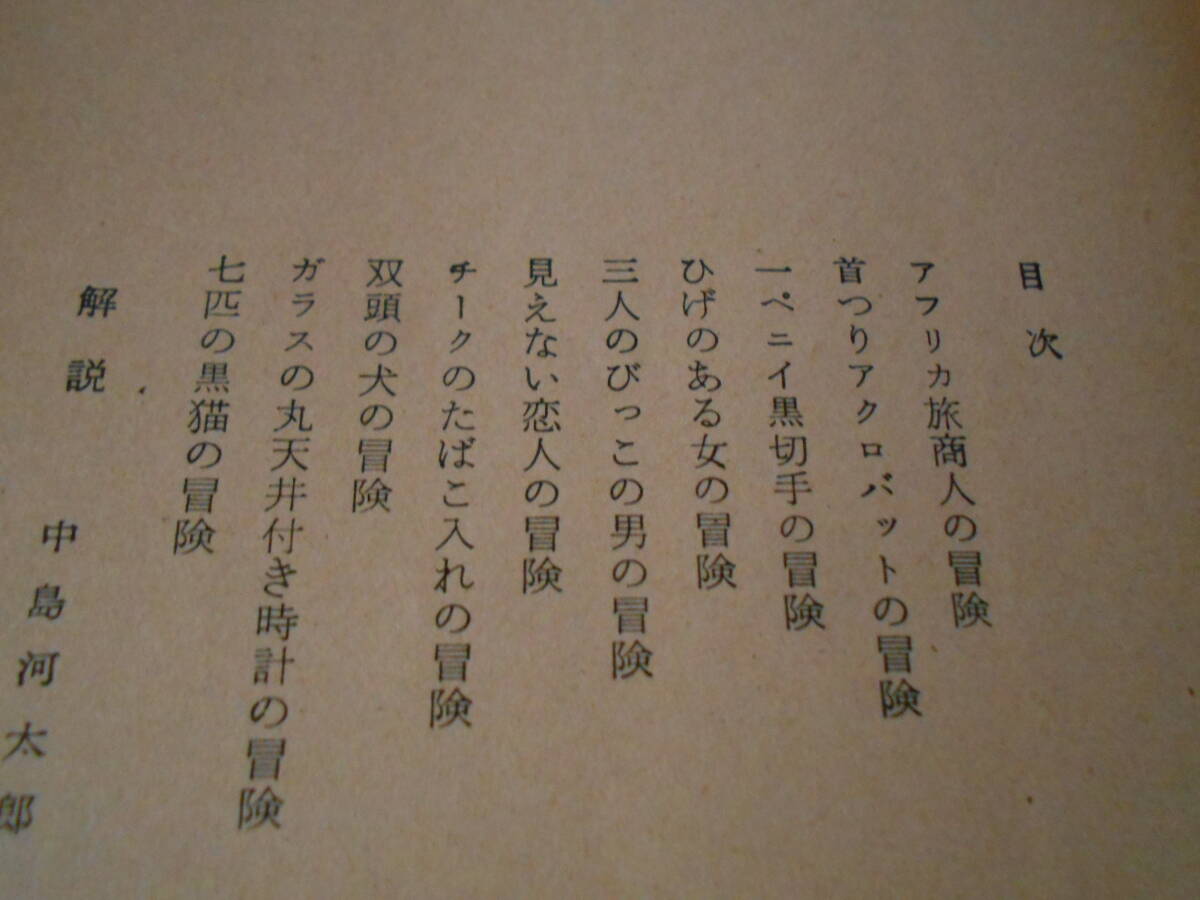 目次
アフリカ旅商人の冒険
首つりアクロバットの冒険
一ペニイ黒切手の冒険
ひげのある女の冒険
三人のびっこの男の冒険
見えない恋人の冒険
チークのたばこ入れの冒険
双頭の犬の冒険
ガラスの丸天井付き時計の冒険
七匹の黒猫の冒険
解説
中島河太郎